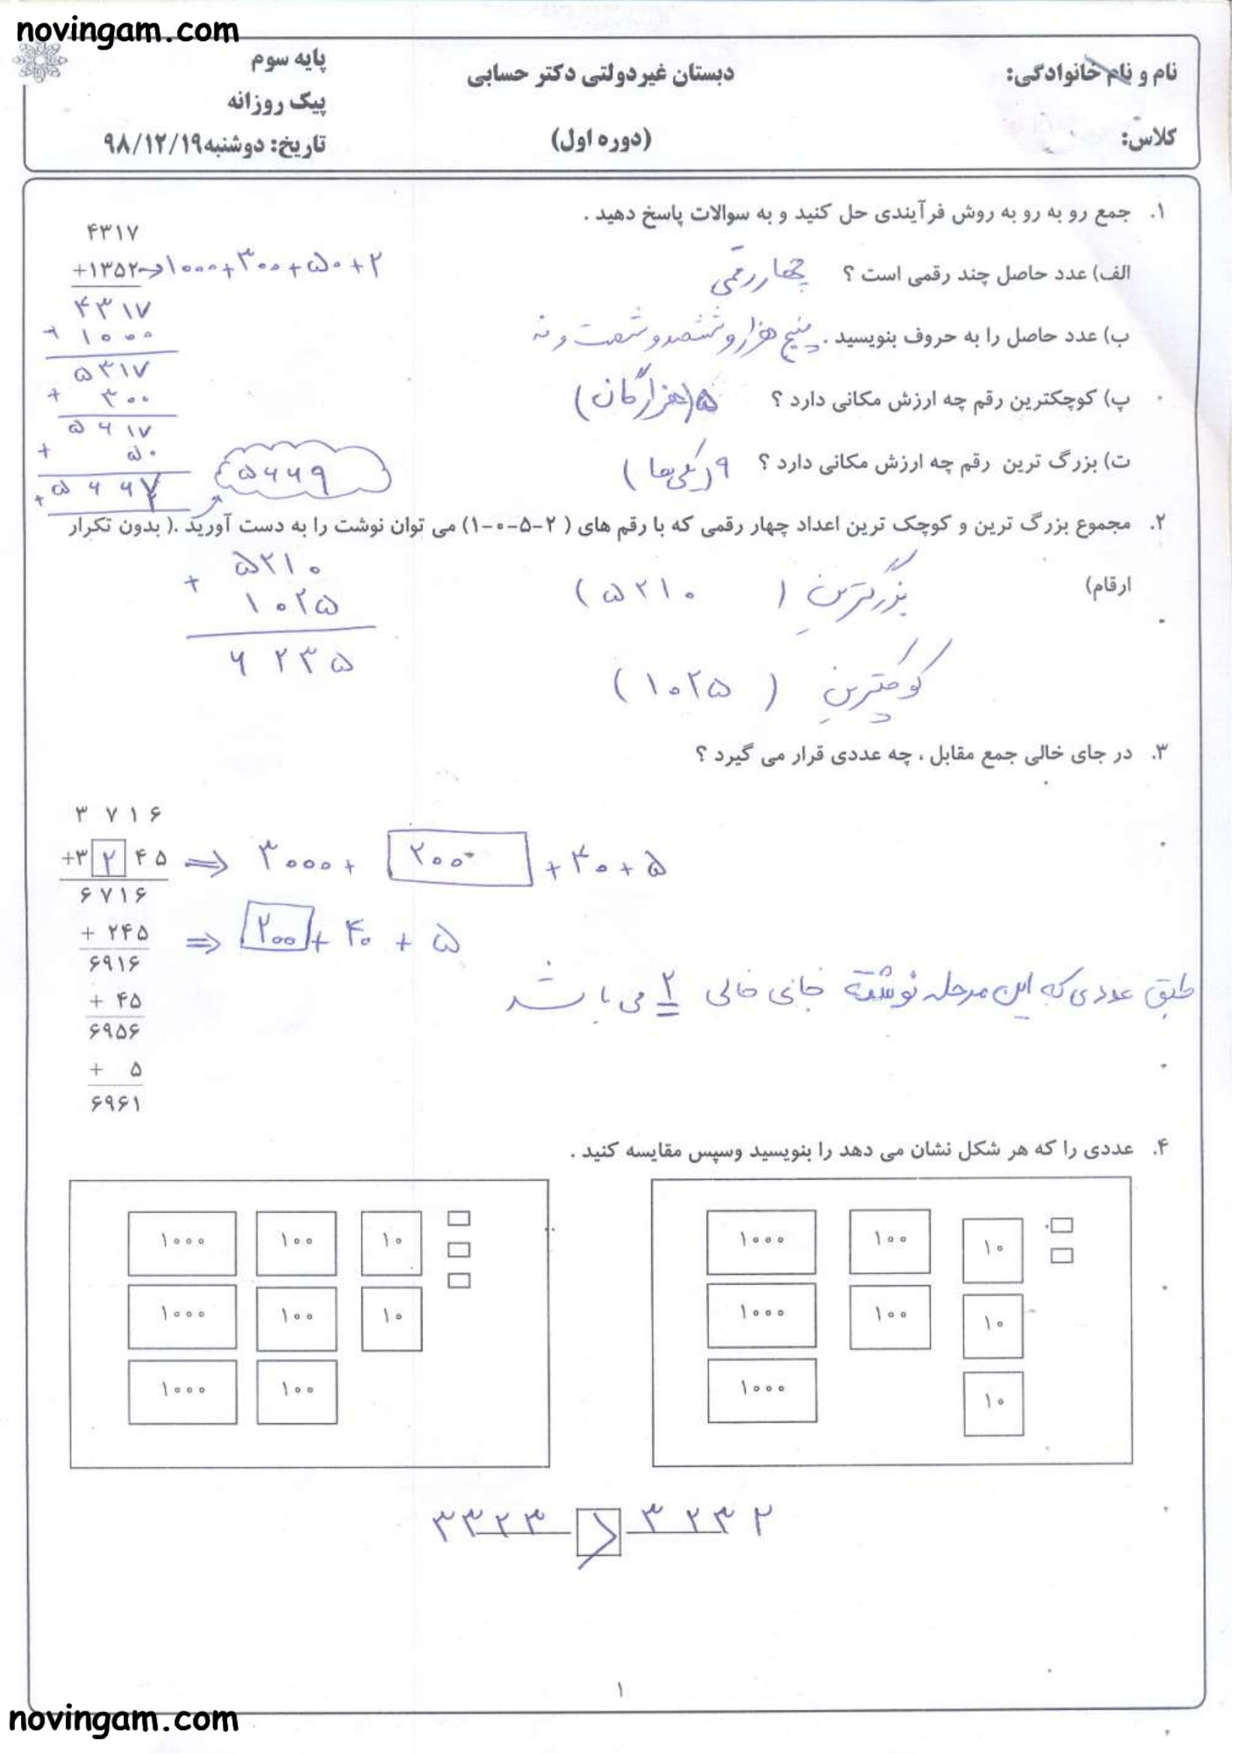 novingam.com
نام و نام خانوادگی:
دبستان غیردولتی دکتر حسابی
پایه سوم
پیک روزانه
کلاس:
(دوره اول)
تاریخ: دوشنبه ۹۸/۱۲/۱۹
۱. جمع رو به رو به روش فرآیندی حل کنید و به سوالات پاسخ دهید .
۴۳۱۷
+۱۳۵۲ → ۱۰۰۰+۳۰۰+۵۰+۲
۴۳۱۷
+ ۱۰۰۰
۵۳۱۷
+ ۳۰۰
۵۶۱۷
+ ۵۰
+ ۵۶۶۷
۲
۵۶۶۹
الف) عدد حاصل چند رقمی است ؟ چهار رقمی
ب) عدد حاصل را به حروف بنویسید . پنج هزار و ششصد و شصت و نه
پ) کوچکترین رقم چه ارزش مکانی دارد ؟ ۵ (هزارگان)
ت) بزرگ ترین رقم چه ارزش مکانی دارد ؟ ۹ (یکی ها)
۲. مجموع بزرگ ترین و کوچک ترین اعداد چهار رقمی که با رقم های ( ۲-۵-۰-۱) می توان نوشت را به دست آورید .( بدون تکرار
ارقام)
بزرگترین ( ۵۲۱۰ )
کوچکترین ( ۱۰۲۵ )
۵۲۱۰
+ ۱۰۲۵
۶۲۳۵
۳. در جای خالی جمع مقابل ، چه عددی قرار می گیرد ؟
۳ ۷ ۱ ۶
+۳ ۲ ۴ ۵ ⇒ ۳۰۰۰ + ۲۰۰ + ۴۰ + ۵
۶۷۱۶
+ ۲۴۵ ⇒ ۲۰۰ + ۴۰ + ۵
۶۹۱۶
+ ۴۵
۶۹۵۶
+ ۵
۶۹۶۱
طبق عددی که این مرحله نوشته جای خالی ۲ می باشد
۴. عددی را که هر شکل نشان می دهد را بنویسید وسپس مقایسه کنید .
۱۰۰۰ ۱۰۰ ۱۰
۱۰۰۰ ۱۰۰ ۱۰
۱۰۰۰ ۱۰۰
۱۰۰۰ ۱۰۰ ۱۰
۱۰۰۰ ۱۰۰ ۱۰
۱۰۰۰ ۱۰
۳۳۲۳ > ۳۲۳۲
۱
novingam.com